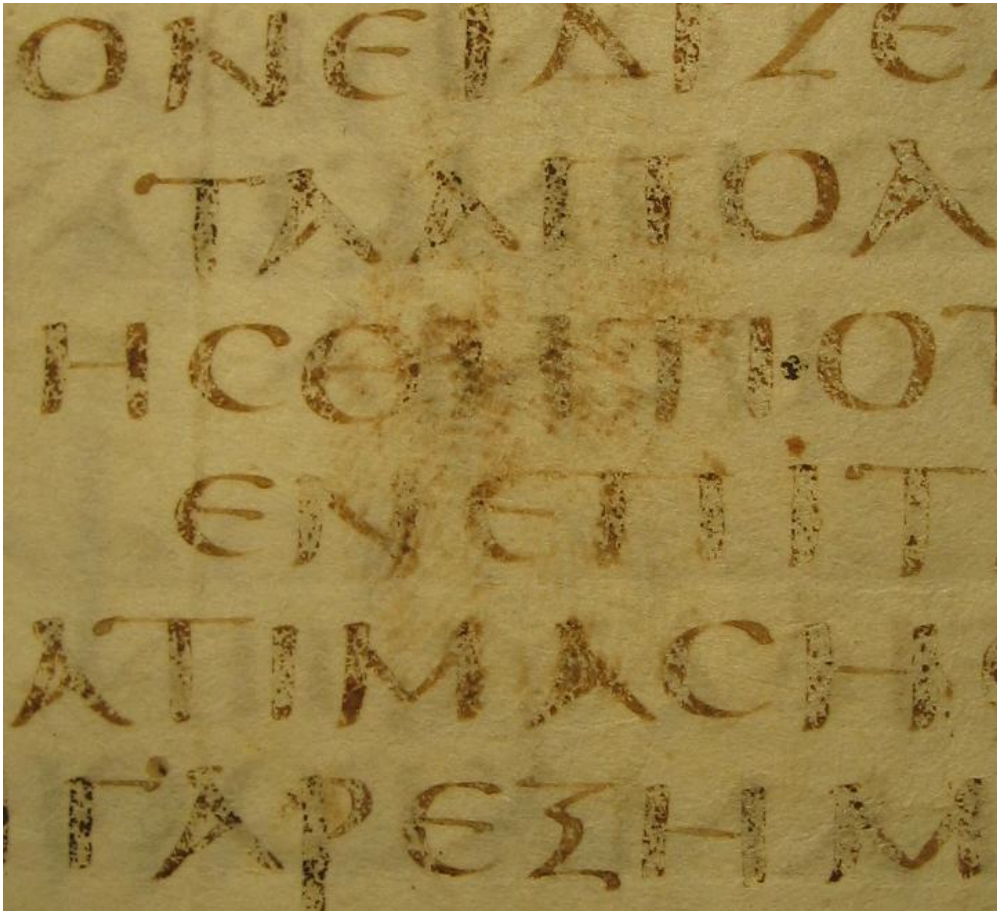 ΟΝΕΙΔΙΖΕ
ΤΑΑΠΟΑ
ΗϹΘΗΤΙ·ΟΤ
ΕΝΕΠΙΤ
ΑΤΙΜΑϹΗϹ
ΓΑΡΕΞΗΜ